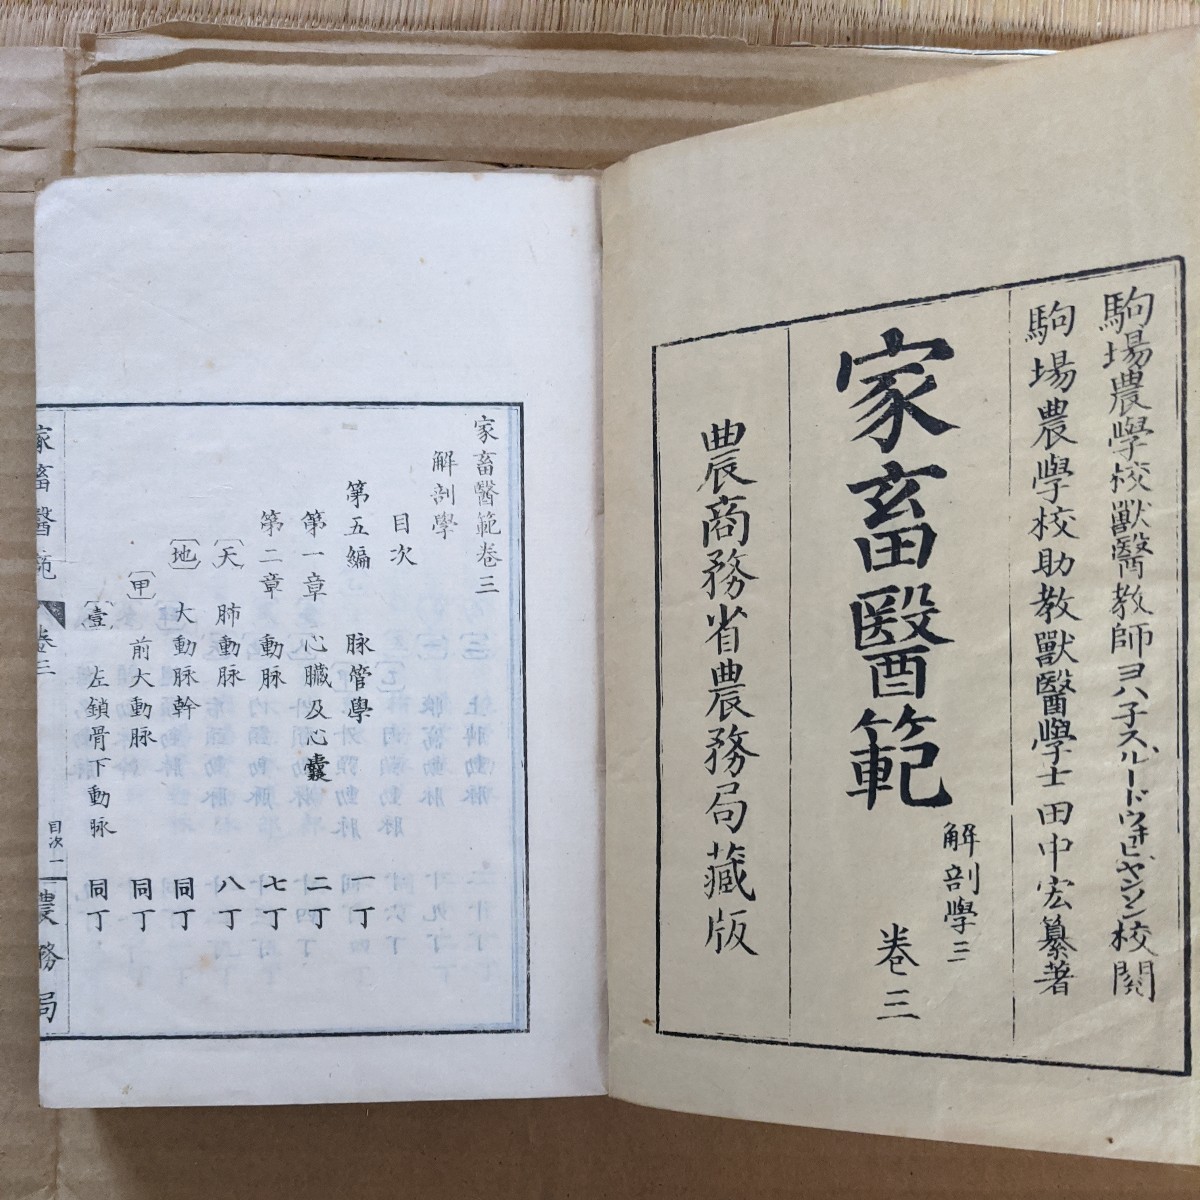 駒場農學校獸醫教師ヨハ子スルードウ井ヒヤンソン校閲
駒場農學校助教獸醫學士田中宏纂著
家畜醫範
解剖學三
卷三
農商務省農務局藏版
家畜醫範卷三
解剖學
目次
第五編 脉管學 一丁
第一章 心臓及心囊 二丁
第二章 動脉 七丁
〔天〕 肺動脉 八丁
〔地〕 大動脉幹 同丁
〔甲〕 前大動脉 同丁
〔壹〕 左鎖骨下動脉 同丁
家畜醫範 卷三 目次 一 農務局